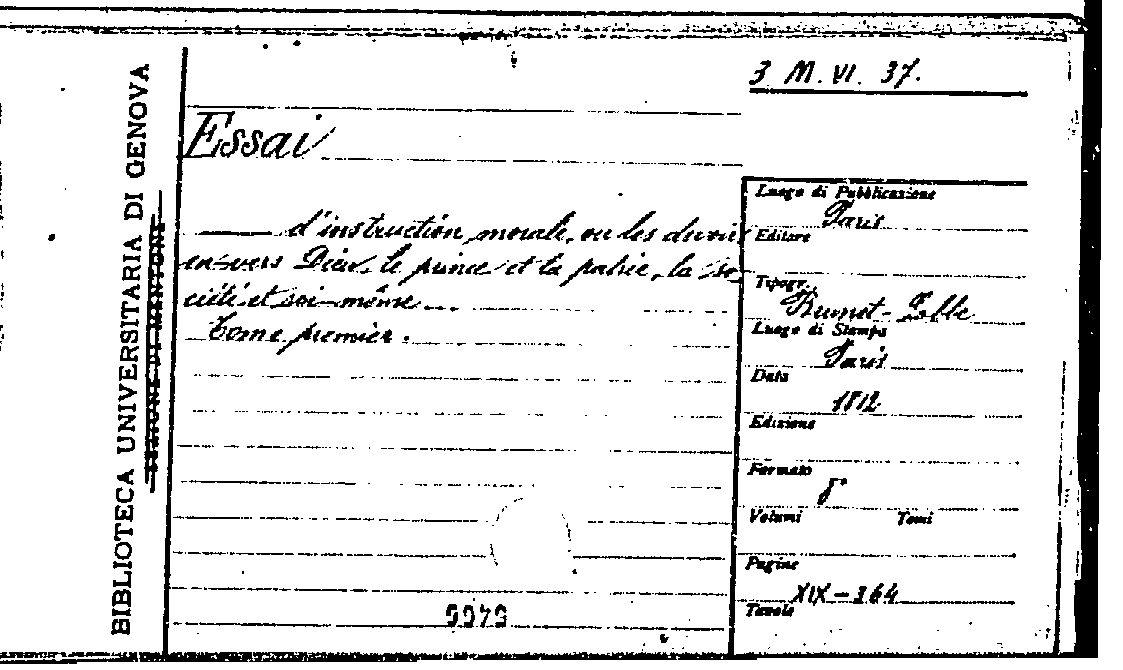 BIBLIOTECA UNIVERSITARIA DI GENOVA
3 M. VI. 37.
Essai
d'instruction morale, ou les devoirs
envers Dieu, le prince et la patrie, la so-
ciété et soi-même...
Tome premier.
Luogo di Pubblicazione
Paris
Editore
Tipogr.
Brunot-Labbe
Luogo di Stampa
Paris
Data
1812
Edizione
Formato
8°
Volumi Tomi
Pagine
XIX-364
Tavole